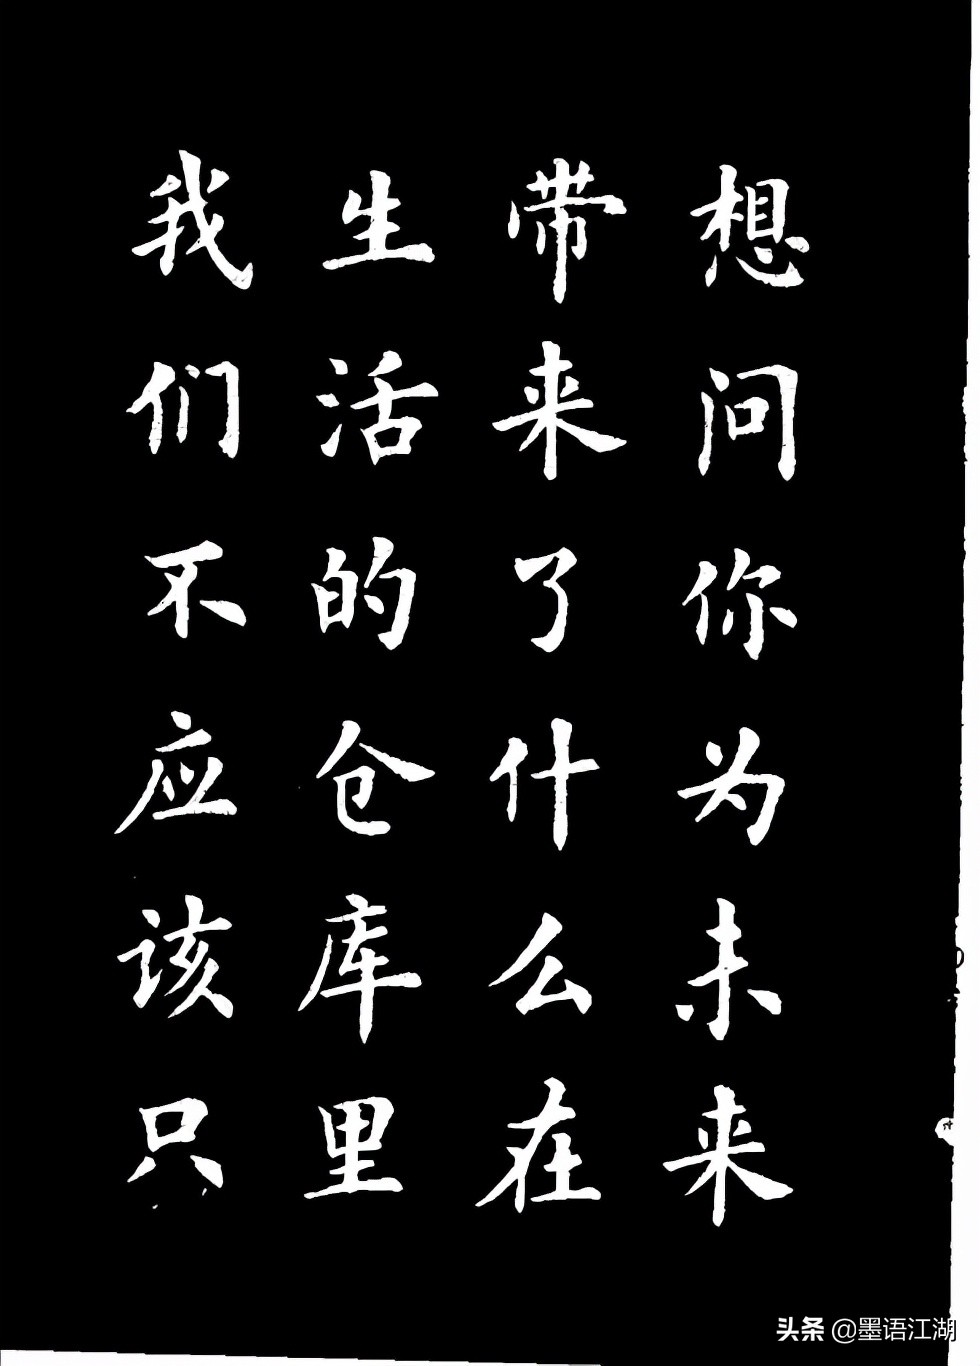 想问你为未来
带来了什么在
生活的仓库里
我们不应该只
头条 @墨语江湖